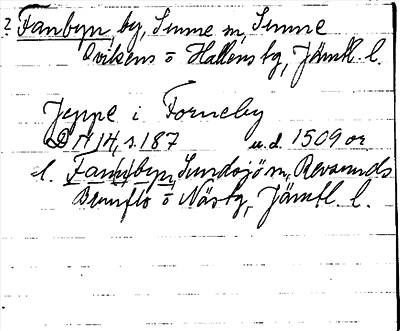 2 Fanbyn by, Sunne sn, Sunne
Ovikens o Hallens tg, Jämtl. l.
Jeppe i Forneby
DN 14, s. 187 u.d. 1509 or
l. Fanbyn, Sundsjö sn, Revsunds
Brunflo o Näs tg, Jämtl. l.